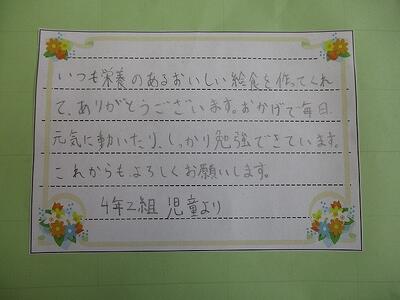 いつも栄養のあるおいしい給食を作ってくれ
て、ありがとうございます。おかげで毎日、
元気に動いたり、しっかり勉強できています。
これからも、よろしくお願いします。
4年2組 児童より